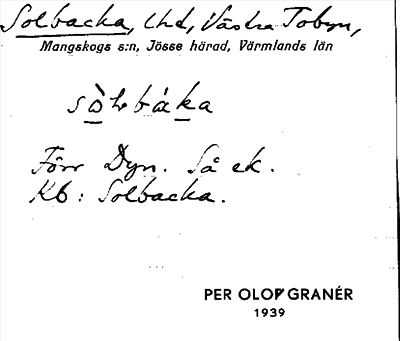 Solbacka, lhd, Västra Tobyn,
Mangskogs s:n, Jösse härad, Värmlands län
sòlbáka
Förr Dyn. Så ek.
Kb: Solbacka.
PER OLOF GRANÉR
1939